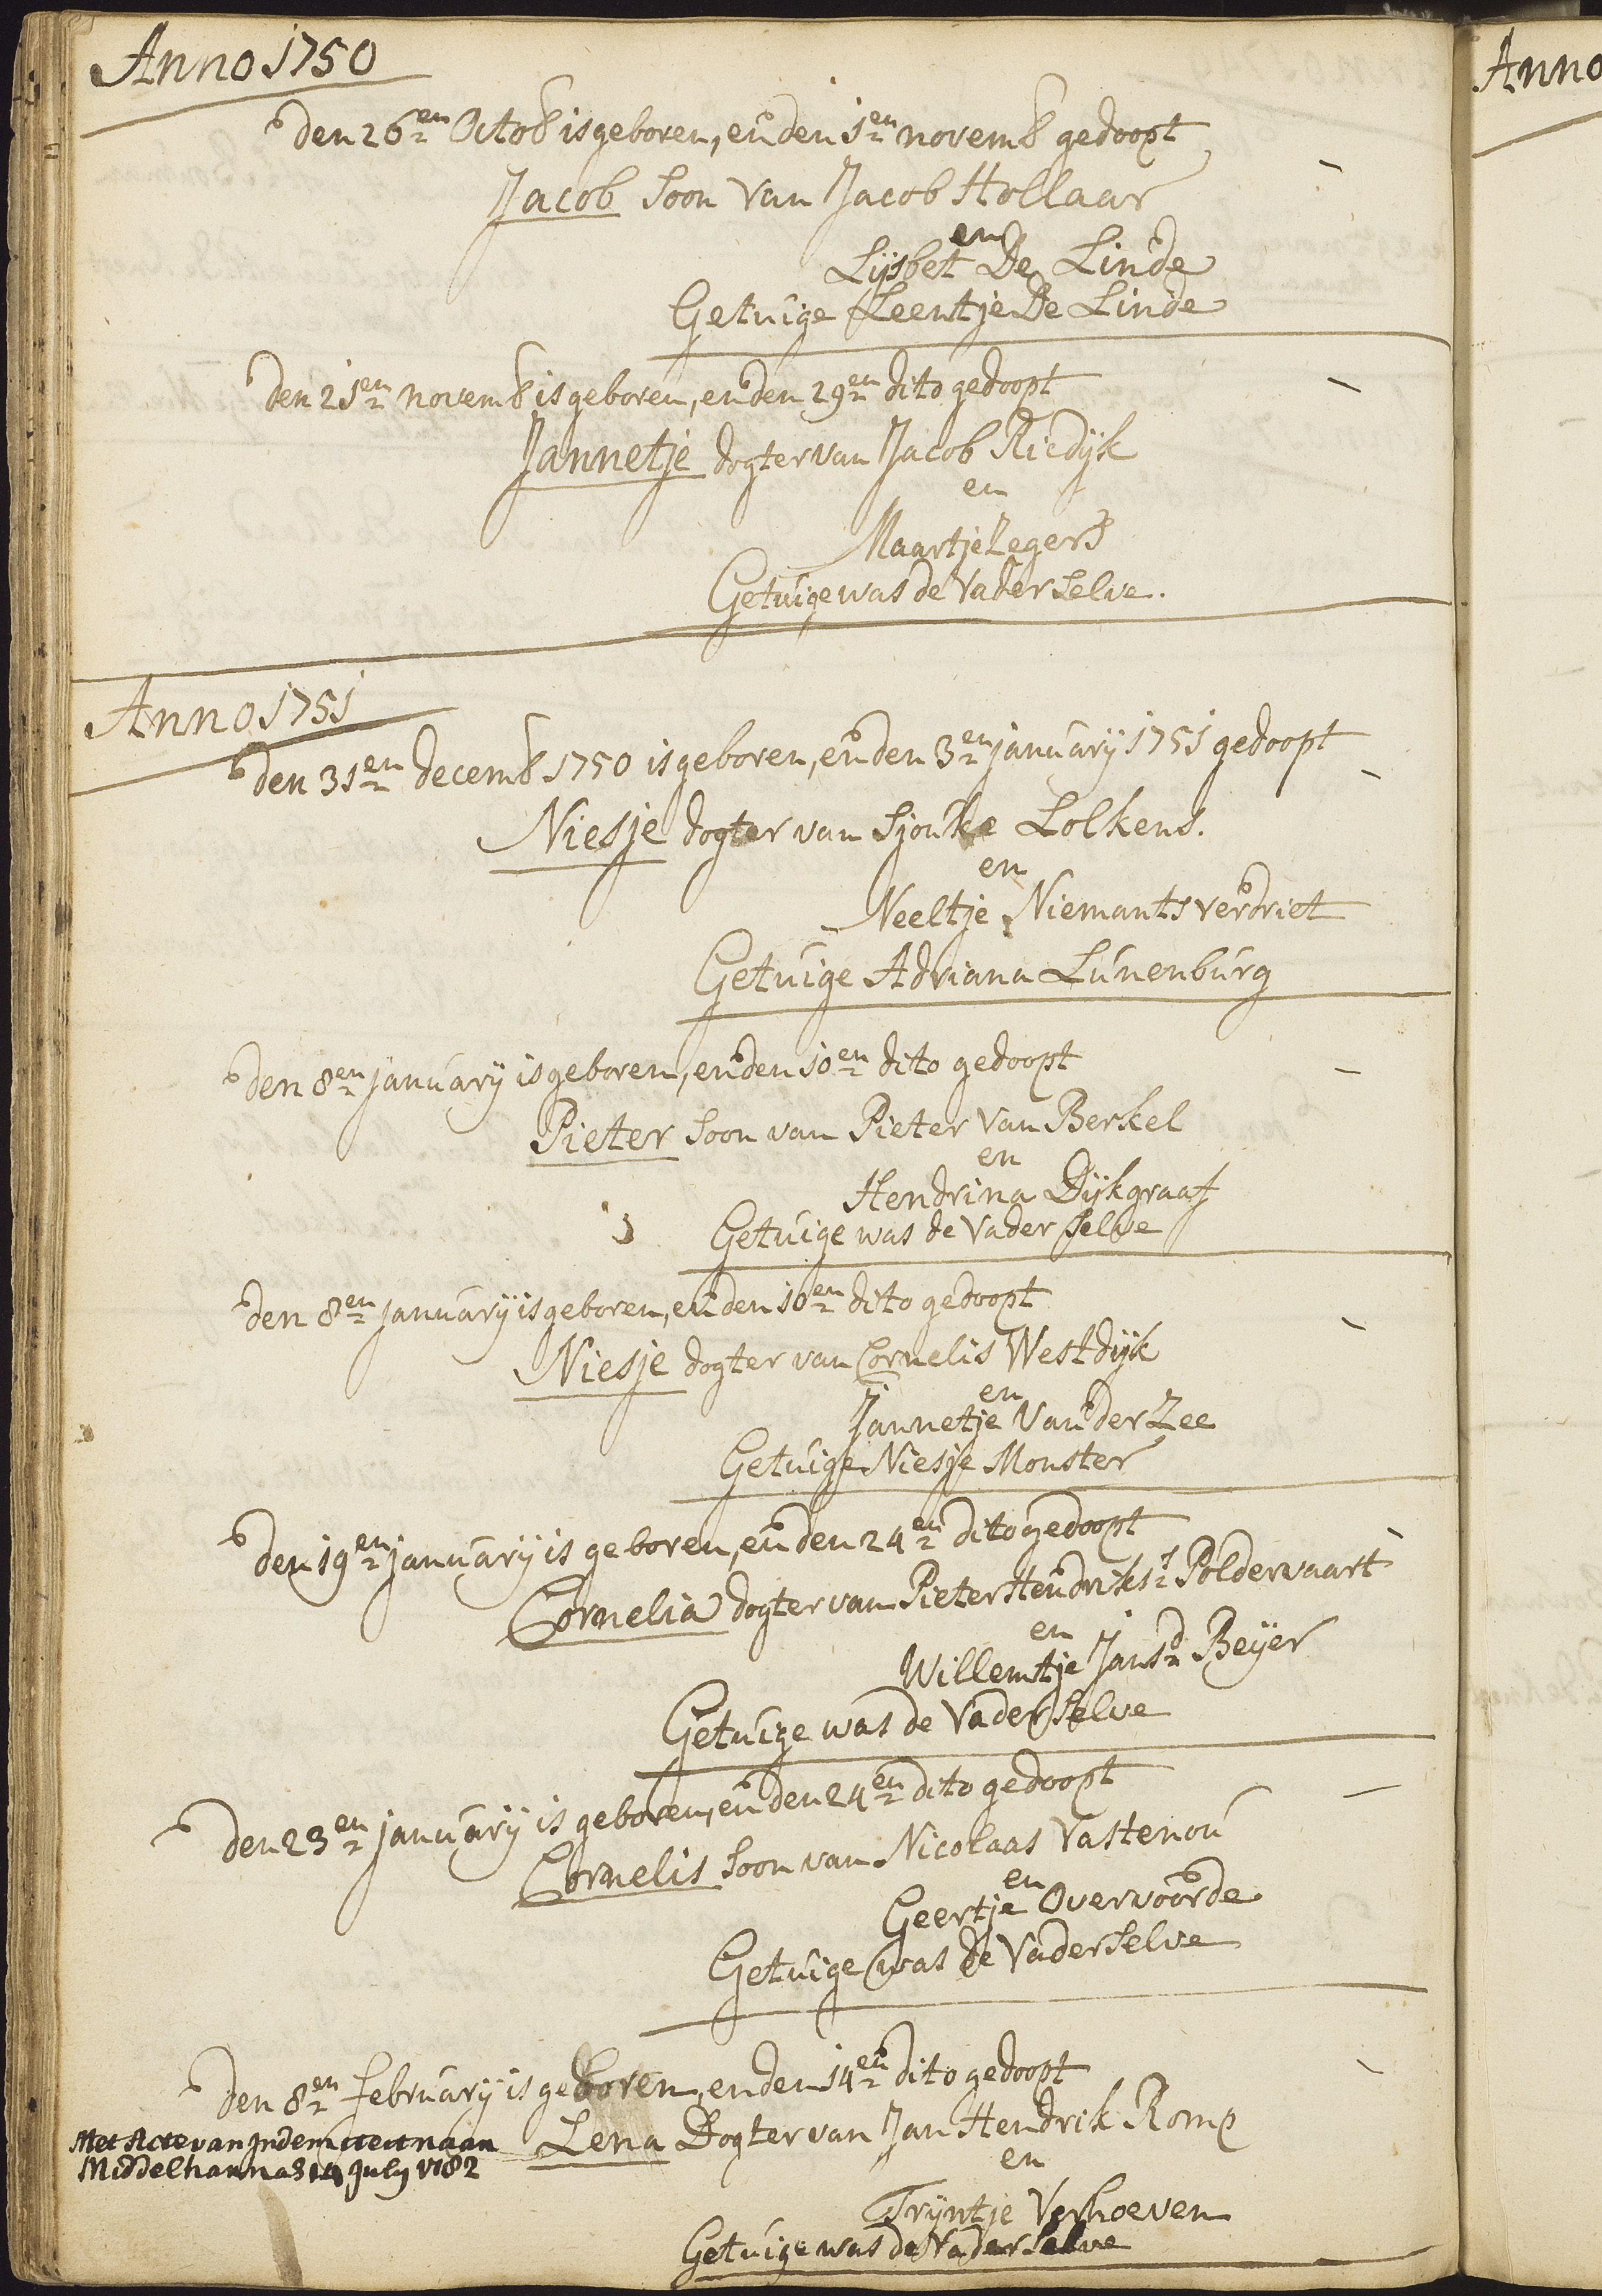 Anno 1750
den 26en Octob is geboren, en den 1en novemb gedoopt
Jacob soon van Jacob Hollaar
en
Lijsbet De Linde
Getuige Leentje De Linde
den 21en novemb is geboren, en den 29en dito gedoopt
Jannetje dogter van Jacob Riedijk
en
Maartje Zegers
Getuige was de Vader selve.
Anno 1751
den 31en decemb 1750 is geboren, en den 3en january 1751 gedoopt
Niesje dogter van Sjouke Lolkens.
en
Neeltje Niemantsverdriet
Getuige Adriana Lunenburg
den 8en january is geboren, en den 10en dito gedoopt
Pieter soon van Pieter van Berkel
en
Hendrina Dijkgraaf
Getuige was de Vader selve
den 8en january is geboren, en den 10en dito gedoopt
Niesje dogter van Cornelis Westdijk
en
Jannetje van der Zee
Getuige Niesje Monster
den 19en january is geboren, en den 24en dito gedoopt
Cornelia dogter van Pieter Hendriksz Poldervaart
en
Willemtje Jansd Beijer
Getuige was de Vader selve
den 23en january is geboren, en den 24en dito gedoopt
Cornelis soon van Nicolaas Vastenou
en
Geertje Overvoorde
Getuige was de Vader selve
den 8en february is geboren, en den 14en dito gedoopt
Lena Dogter van Jan Hendrik Romp
Met Acte van Indemniteit naar
Middelharnas 14 July 1782
en
Trijntje Verhoeven
Getuige was de Vader selve
Anno